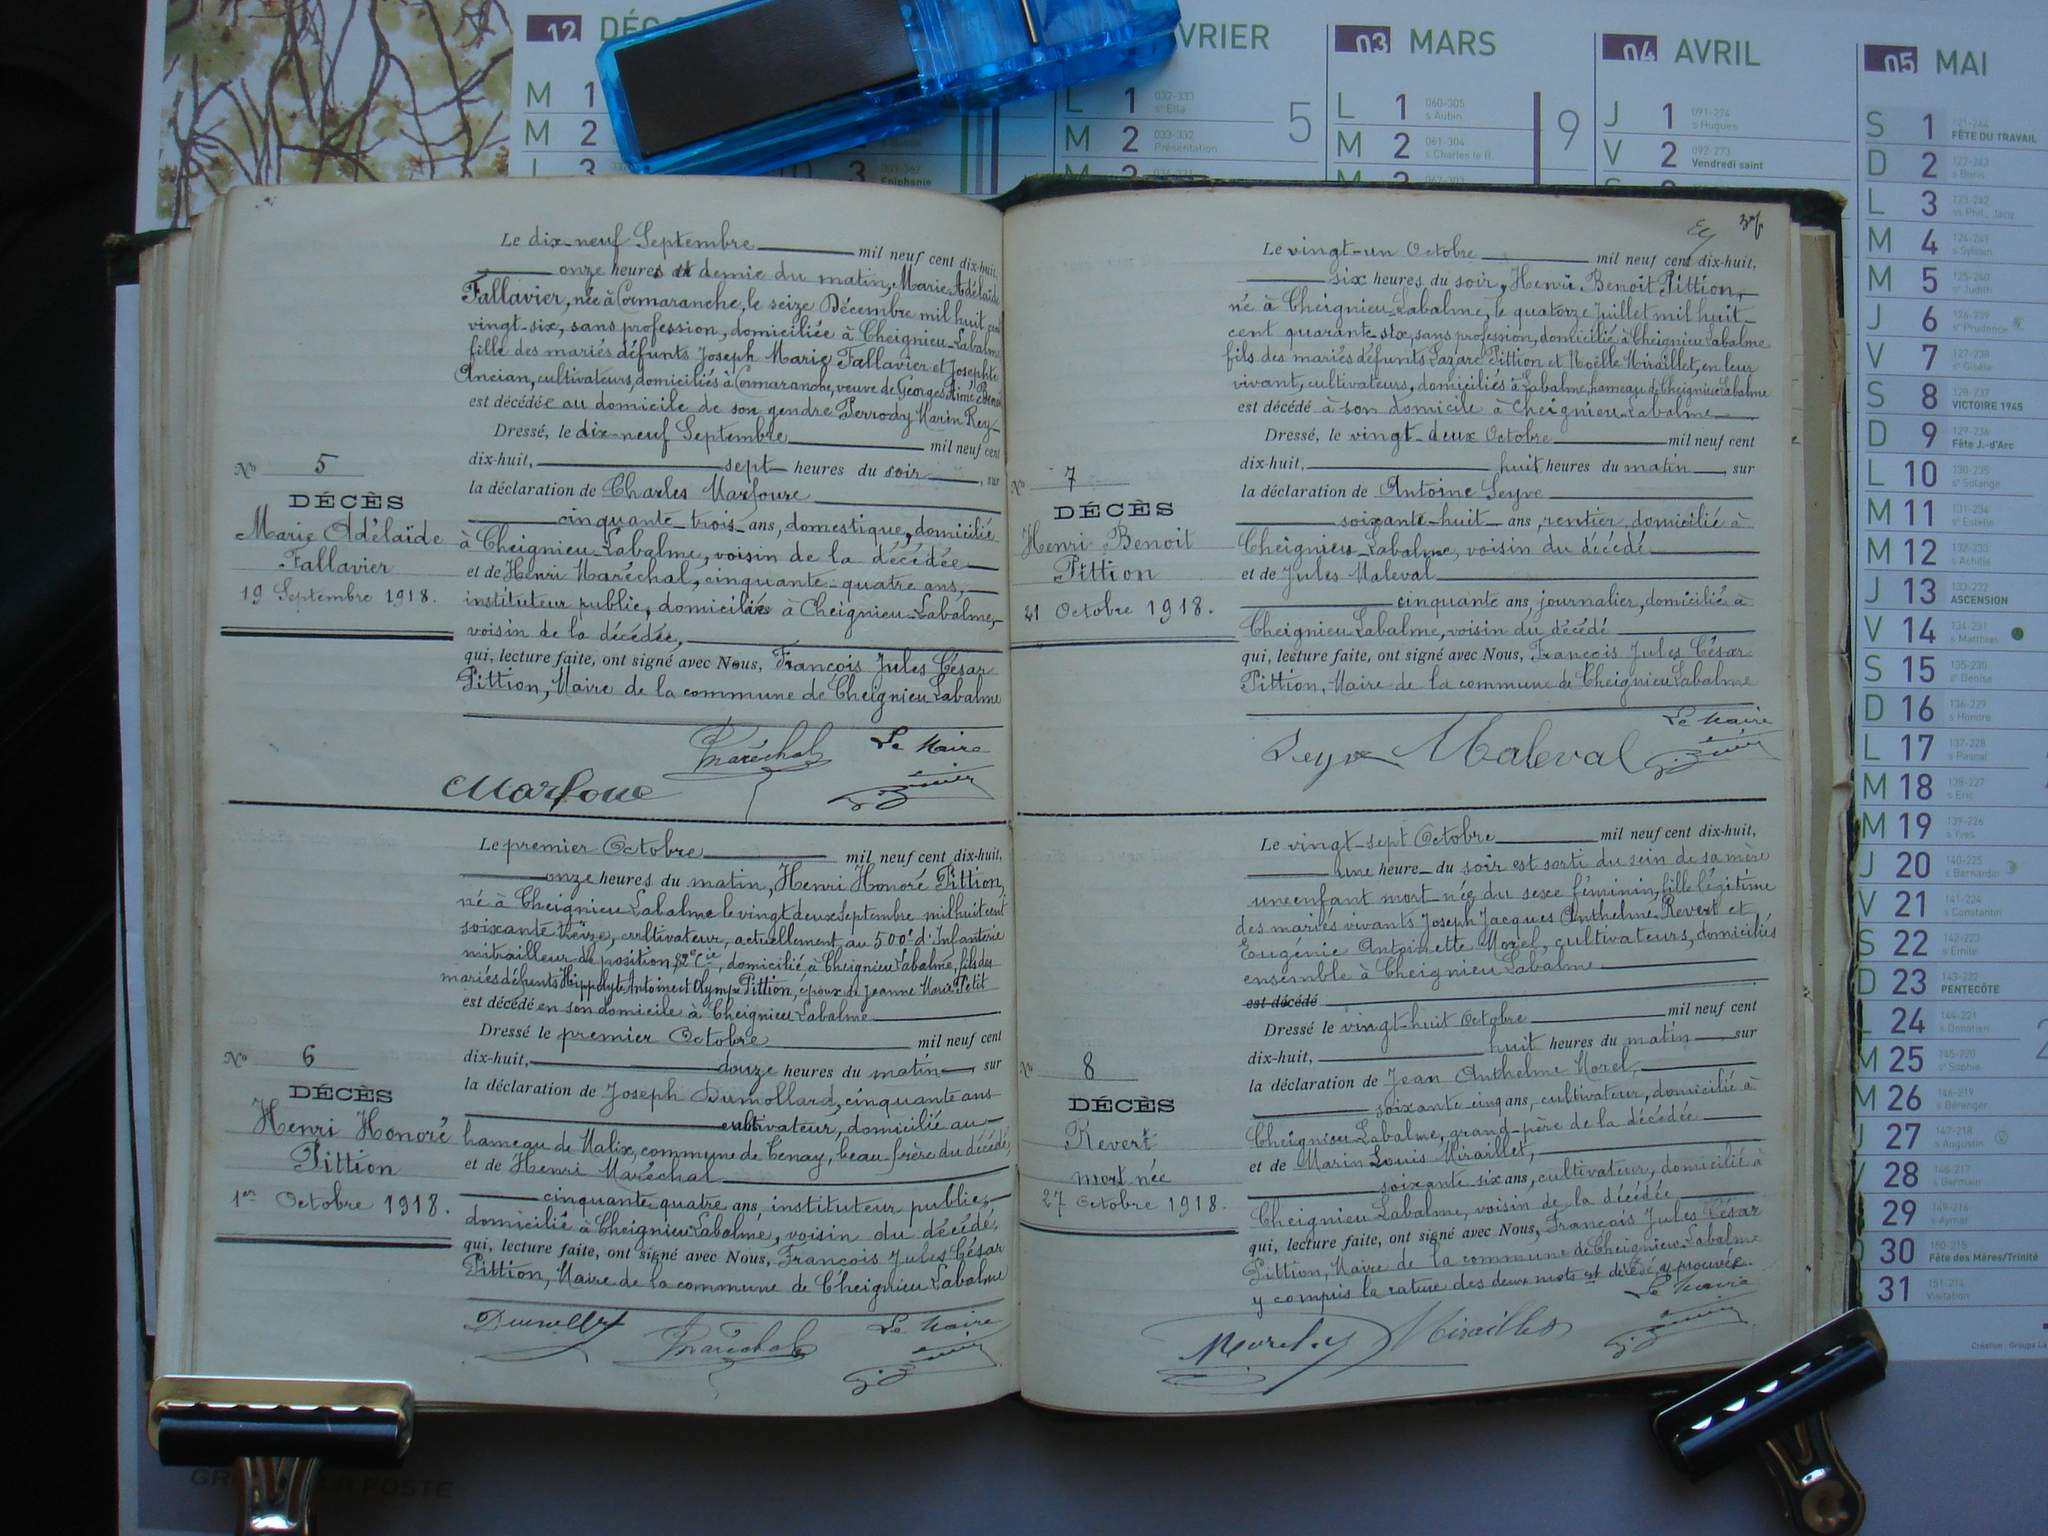 12 DÉC
VRIER
03 MARS
04 AVRIL
05 MAI
M 1
M 2
L 3
D 3
Epiphanie
L 1 032-333
M 2 033-332
Présentation
5
L 1 060-305
s Aubin
M 2 061-304
s Charles le B.
9
J 1 091-274
s Hugues
V 2 092-273
Vendredi saint
Le dix-neuf Septembre mil neuf cent dix-huit,
onze heures et demie du matin, Marie Adélaïde
Fallavier, née à Cormaranche, le seize Décembre mil huit cent
vingt-six, sans profession, domiciliée à Cheignieu-Labalme
fille des mariés défunts Joseph Marie Fallavier et Josephte
Ancian, cultivateurs, domiciliés à Cormaranche, veuve de Georges Aimé
est décédée au domicile de son gendre Perrody Marin Rey
Dressé, le dix-neuf Septembre mil neuf cent
dix-huit, sept heures du soir, sur
la déclaration de Charles Marfoure
cinquante-trois ans, domestique, domicilié
à Cheignieu-Labalme, voisin de la décédée
et de Henri Maréchal, cinquante-quatre ans,
instituteur public, domiciliés à Cheignieu-Labalme,
voisin de la décédée,
qui, lecture faite, ont signé avec Nous, François Jules César
Pittion, Maire de la commune de Cheignieu Labalme
No 5
DÉCÈS
Marie Adélaïde
Fallavier
19 Septembre 1918.
Maréchal
Le Maire
Marfoure
Le premier Octobre mil neuf cent dix-huit,
onze heures du matin, Henri Honoré Pittion,
né à Cheignieu Labalme le vingt deux Septembre mil huit cent
soixante treize, cultivateur, actuellement au 500e d'Infanterie
mitrailleur de position, 82e Cie, domicilié à Cheignieu Labalme, fils des
mariés défunts Hippolyte Antoine et Olympe Pittion, époux de Jeanne Marie Petit
est décédé en son domicile à Cheignieu Labalme
Dressé le premier Octobre mil neuf cent
dix-huit, douze heures du matin, sur
la déclaration de Joseph Dumollard, cinquante ans
cultivateur, domicilié au
hameau de Malix, commune de Tenay, beau frère du décédé,
et de Henri Maréchal
cinquante quatre ans, instituteur public,
domicilié à Cheignieu Labalme, voisin du décédé,
qui, lecture faite, ont signé avec Nous, François Jules César
Pittion, Maire de la commune de Cheignieu Labalme
No 6
DÉCÈS
Henri Honoré
Pittion
1er Octobre 1918.
Maréchal
Le Maire
Le vingt-un Octobre mil neuf cent dix-huit,
six heures du soir, Henri Benoit Pittion,
né à Cheignieu Labalme, le quatorze Juillet mil huit
cent quarante-six, sans profession, domicilié à Cheignieu Labalme
fils des mariés défunts Lazare Pittion et Noëlle Miraillet, en leur
vivant, cultivateurs, domiciliés à Labalme, hameau de Cheignieu Labalme
est décédé à son domicile à Cheignieu Labalme
Dressé, le vingt-deux Octobre mil neuf cent
dix-huit, huit heures du matin, sur
la déclaration de Antoine Seyve
soixante-huit ans, rentier, domicilié à
Cheignieu-Labalme, voisin du décédé
et de Jules Maleval
cinquante ans, journalier, domicilié à
Cheignieu Labalme, voisin du décédé
qui, lecture faite, ont signé avec Nous, François Jules César
Pittion, Maire de la commune de Cheignieu Labalme
No 7
DÉCÈS
Henri Benoit
Pittion
21 Octobre 1918.
Seyve Maleval
Le Maire
Le vingt-sept Octobre mil neuf cent dix-huit,
une heure du soir est sorti du sein de sa mère
une enfant mort-née du sexe féminin, fille légitime
des mariés vivants Joseph Jacques Anthelme Revert et
Eugénie Antoinette Morel, cultivateurs, domiciliés
ensemble à Cheignieu Labalme
est décédé
Dressé le vingt-huit Octobre mil neuf cent
dix-huit, huit heures du matin, sur
la déclaration de Jean Anthelme Morel,
soixante-cinq ans, cultivateur, domicilié à
Cheignieu Labalme, grand-père de la décédée
et de Marin Louis Miraillet,
soixante six ans, cultivateur, domicilié à
Cheignieu Labalme, voisin de la décédée
qui, lecture faite, ont signé avec Nous, François Jules César
Pittion, Maire de la commune de Cheignieu-Labalme
y compris la rature des deux mots est décédé, approuvée.
No 8
DÉCÈS
Revert
mort née
27 Octobre 1918.
Le Maire
S 1 121-244
FÊTE DU TRAVAIL
D 2
s Boris
L 3
ss Phil., Jacq.
M 4
s Sylvain
M 5
se Judith
J 6
se Prudence
V 7
se Gisèle
S 8
VICTOIRE 1945
D 9
Fête J.-d'Arc
L 10
se Solange
M 11
se Estelle
M 12
s Achille
J 13
ASCENSION
V 14
s Matthias
S 15
se Denise
D 16
s Honoré
L 17
s Pascal
M 18
s Eric
M 19
s Yves
J 20
s Bernardin
V 21
s Constantin
S 22
s Emile
D 23
PENTECÔTE
L 24
s Donatien
M 25
se Sophie
M 26
s Bérenger
J 27
s Augustin
V 28
s Germain
29
s Aymar
30
Fête des Mères/Trinité
31
Visitation